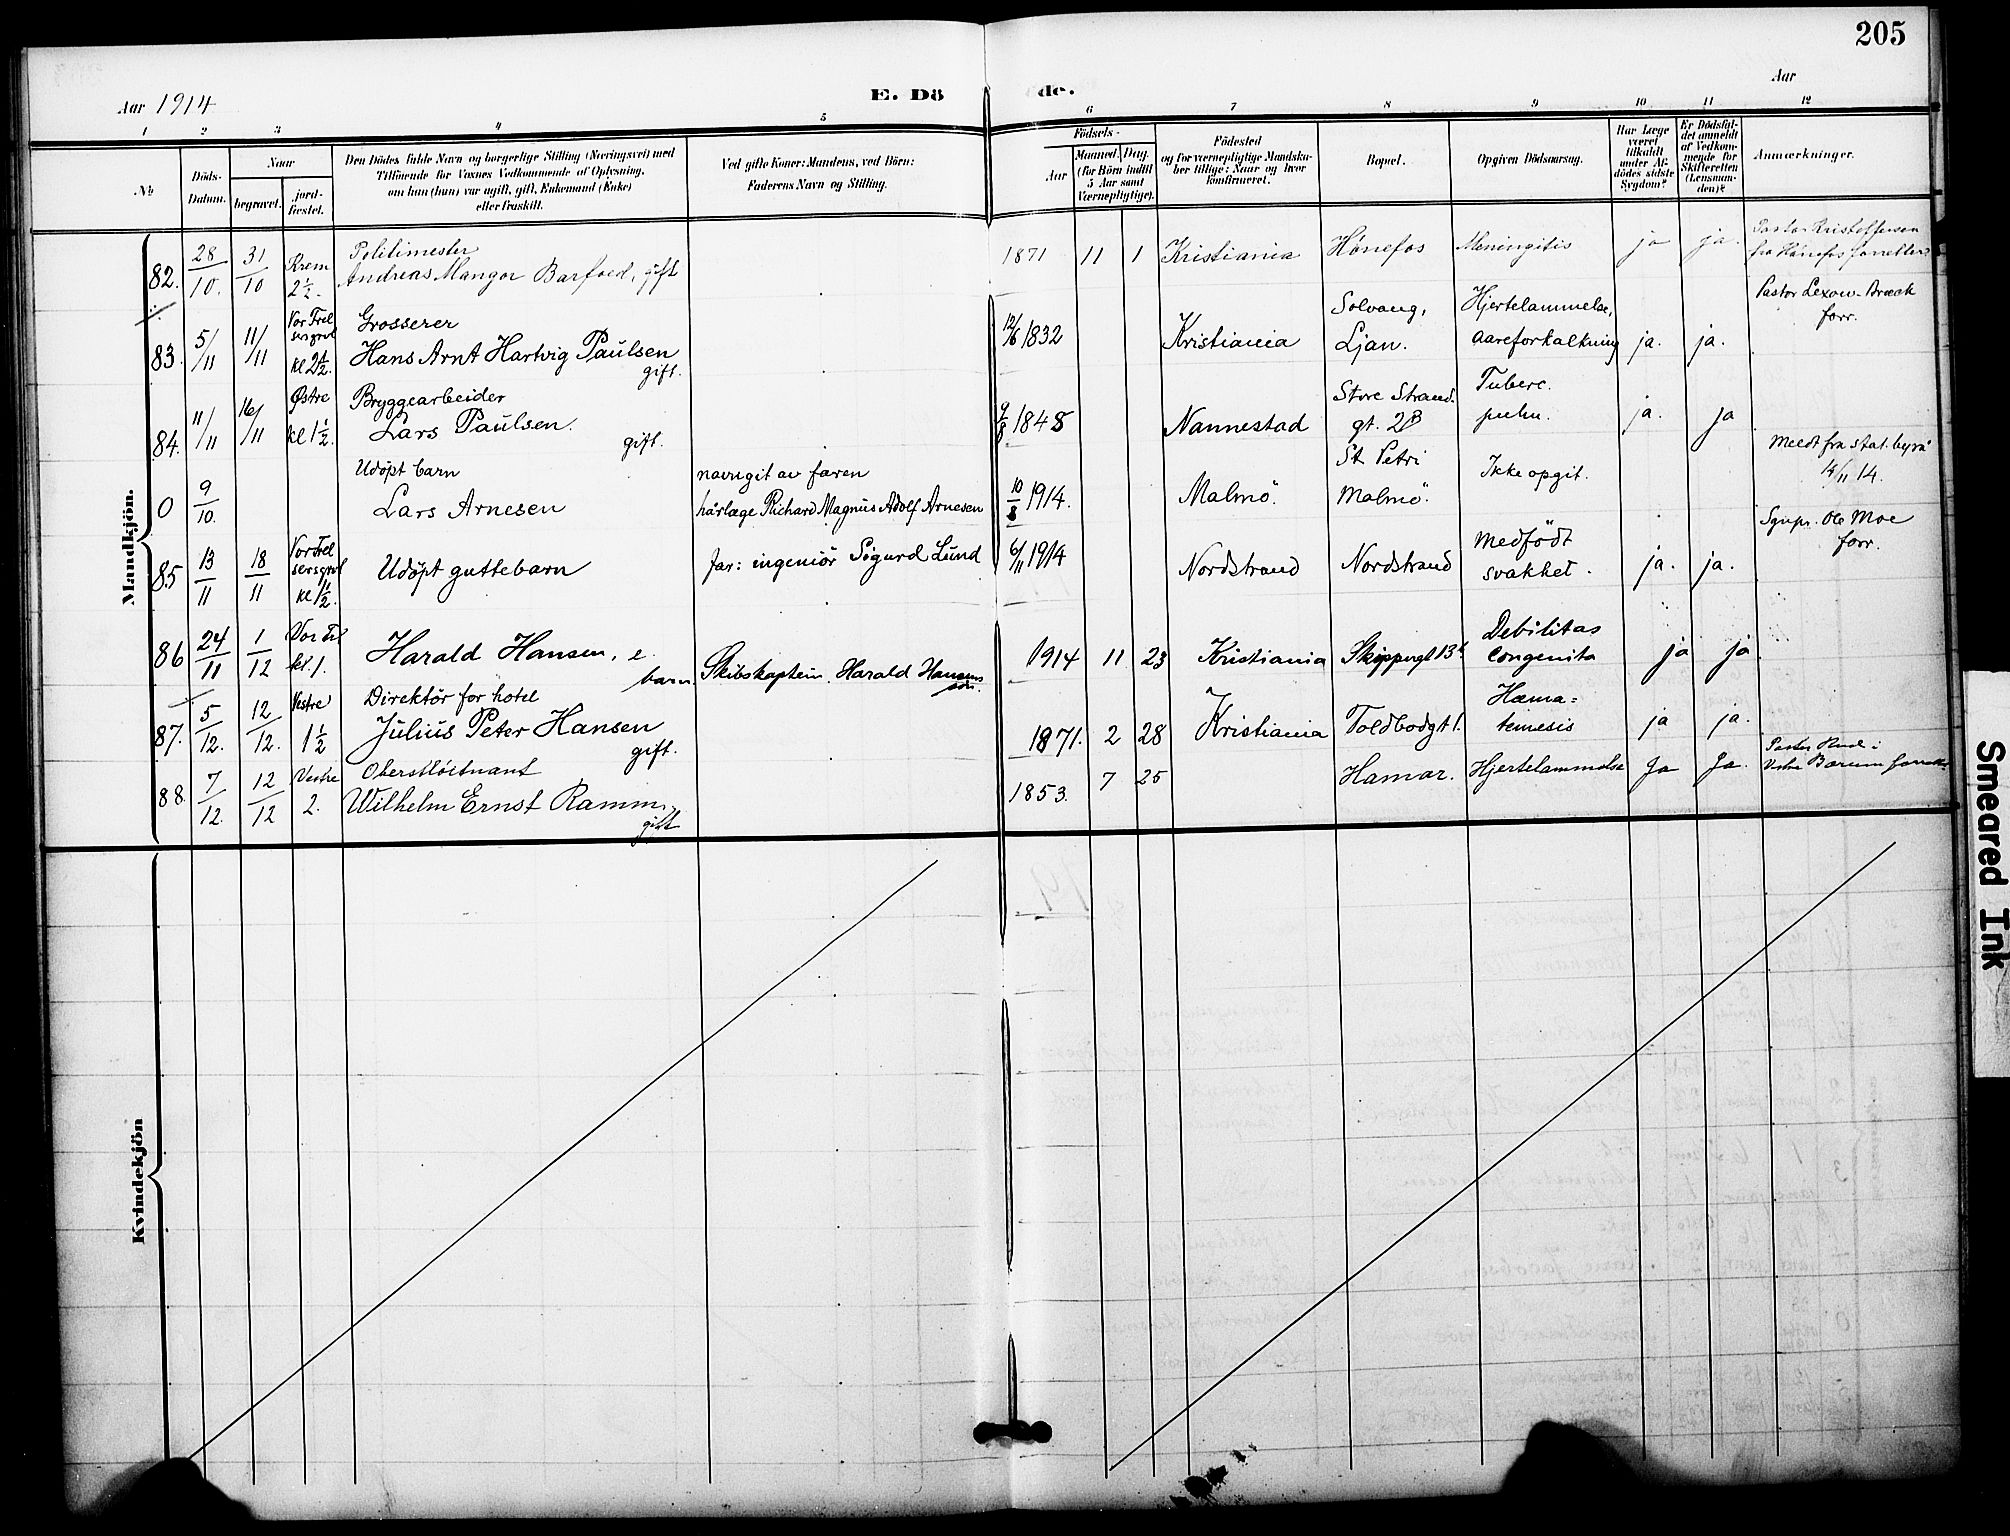 205
Aar 1914
E. Dö
de.
Aar
1 2 3 4 5 6 7 8 9 10 11 12
No
Döds-
Datum.
Naar
begravet.
jord-
fæstet.
Den Dödes fulde Navn og borgerlige Stilling (Næringsvei) med
Tilföiende for Voxnes Vedkommende af Oplysning,
om han (hun) var ugift, gift, Enkemand (Enke)
eller fraskilt.
Ved gifte Koner: Mandens, ved Börn:
Faderens Navn og Stilling.
Födsels-
Aar
Maaned. Dag.
(for Börn indtil
5 Aar samt
Værnepligtige).
Födested
og for værnepligtige Mandska-
ber tillige: Naar og hvor
konfirmeret.
Bopæl.
Opgiven Dödsaarsag.
Har Læge
været
tilkaldt
under Af-
dödes sidste
Sygdom?
Er Dödsfal-
det anmeldt
af Vedkom-
mende for
Skifteretten
(Lensman-
den)?
Anmærkninger.
Mandkjön.
82. 28/10. 31/10 Krem 2½.
Politimester
Andreas Mangor Barfoed, gift
1871 11 1 Kristiania Hönefos Meningitis ja ja.
Pastor Kristoffersen
fra Hönefos forrettet
83. 5/11 11/11 Vor Frel
sersgrol
kl 2½.
Grosserer
Hans Arnt Hartvig Paulsen
gift.
12/6 1832 Kristiania
Solvang,
Ljan.
Hjertelammelse,
aareforkalkning ja. ja.
Pastor Lexow-Bræck
forr.
84. 11/11 16/11 Østre
kl 1½.
Bryggearbeider
Lars Paulsen.
gift.
9/8 1848 Nannestad
Store Strand-
gt. 2B
Tuberc.
pulm. ja. ja
0 9/10.
Udöpt barn
Lars Arnesen
navngit av faren
hårlæge Richard Magnus Adolf Arnesen
10/8 1914. Malmö.
St Petri
Malmö.
Ikke opgit.
Meldt fra stat. byrå
14/11 14.
85 13/11 18/11 Vor Frel
sersgrol
kl 1½.
Udöpt guttebarn
far: ingeniör Sigurd Lund
6/11 1914 Nordstrand Nordstrand
medfödt
svakhet. ja. ja.
Sgnpr. Ole Moe
forr.
86 24/11 1/12 Vor Fr
kl. 1.
Harald Hansen, e.
barn.
Skibskaptein Harald Hansens
sön.
1914 11 23 Kristiania Skippergt 13
Debilitas
Congenita ja ja
87. 5/12. 12/12. Vestre
1½
Direktör for hotel
Julius Peter Hansen
gift.
1871. 2 28 Kristiania Toldbodgt 1.
Hæma-
temesis ja ja.
88. 7/12. 12/12 Vestre
2.
Oberstlöitnant
Wilhelm Ernst Ramm,
gift
1853. 7 25 Hamar. Hjertelammelse Ja Ja.
Pastor Rud i
Vestre Bærum forrettet
Kvindekjön
Smeared Ink